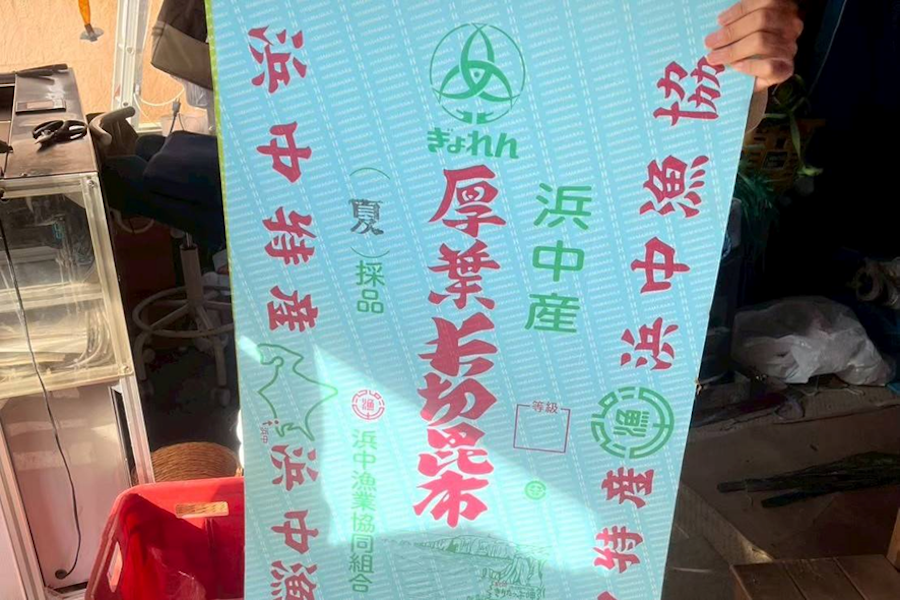 浜中漁協
漁
特産
浜中産
等級
ぎょれん
厚葉长切昆布
（夏）採品
漁
浜中漁業協同組合
浜中特産
浜中漁